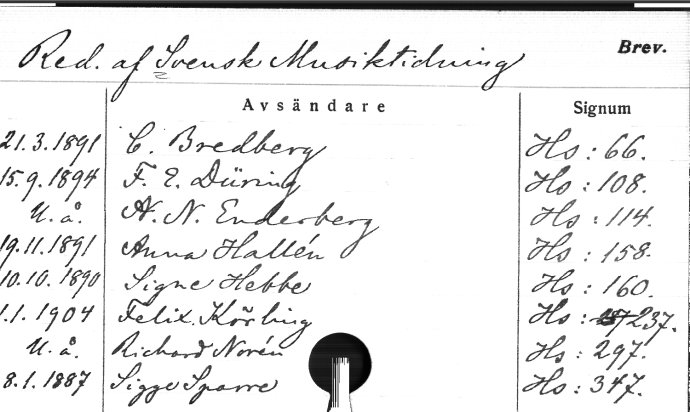 Red. af Svensk Musiktidning Brev.
Avsändare Signum
21.3.1891 C. Bredberg Hs : 66.
15.9.1894 F. E. Düring Hs : 108.
U. å. A. N. Enderberg Hs : 114.
19.11.1891 Anna Hallén Hs : 158.
10.10.1890 Signe Hebbe Hs : 160.
1.1.1904 Felix Körling Hs : 237.
U. å. Richard Norén Hs : 297.
8.1.1887 Sigge Sparre Hs : 347.